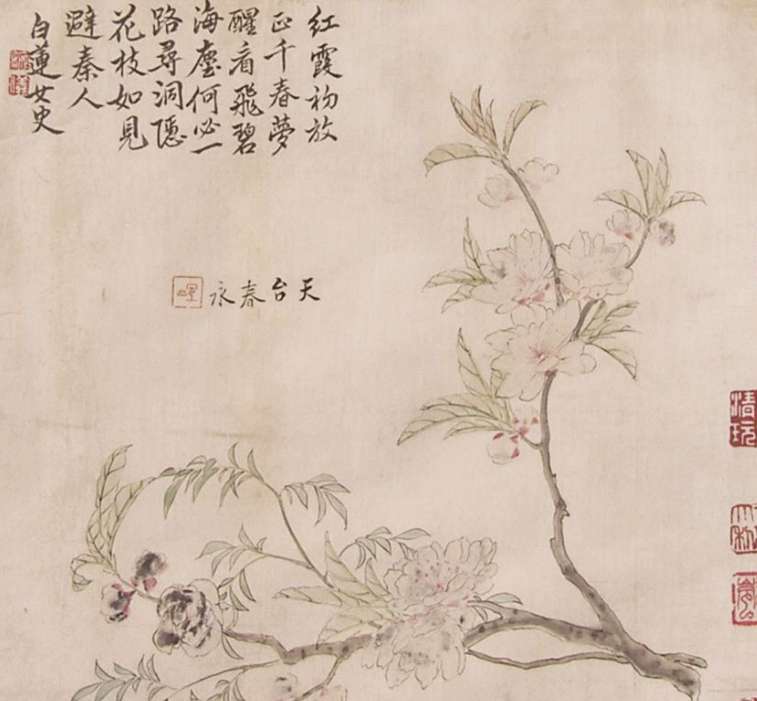 红霞初放
正千春梦
醒看飛碧
海塵何必一
路尋洞隱
花枝如見
避秦人
白蓮女史
天台春永
清玩